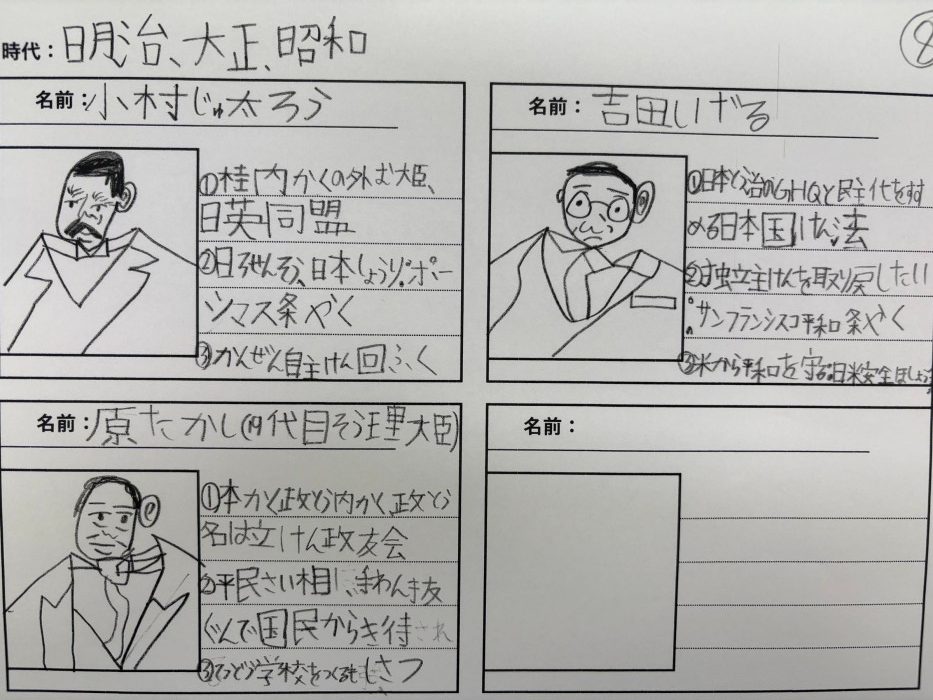 ⑧
時代：明治、大正、昭和
名前：小村じゅ太ろう
①桂内かくの外む大臣、
日英同盟
②日ろせんそう、日本しょうり。ポー
ツマス条やく
③かんぜん自主けん回ふく
名前：吉田しげる
①日本とう治のGHQと民主代をすす
める日本国けん法
②独立主けんを取り戻したい
。サンフランシスコ平和条やく
③米から平和を守る。日米安全ほしょう
名前：原たかし(19代目そう理大臣)
①本かく政とう内かく、政とう
名は立けん政友会
②平民さい相し、手わん抜
ぐんで国民からき待され
③てつどう学校をつくるも しさつ
名前：